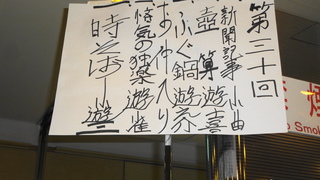 第二十回
新聞記事 小曲
壺算 遊喜
ふぐ鍋 遊京
お仲入り
悋気の独楽 遊雀
時そば 遊三
禁煙
No Smok